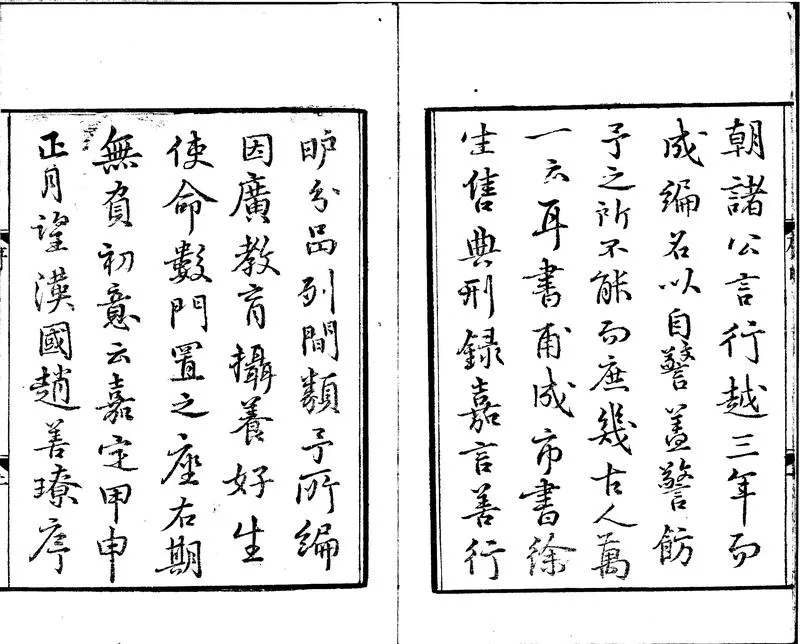 朝諸公言行越三年而
成編名以自警蓋警飭
予之所不能而庶幾古人萬
一云耳書甫成市書徐
生售典刑録嘉言善行
昈分品列間類予所編
因廣教育攝養好生
使命數門置之座右期
無負初意云嘉定甲申
正月望漢國趙善璙序